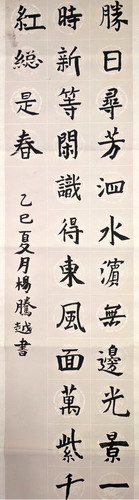 勝日尋芳泗水濵無邊光景一
時新等閑識得東風面萬紫千
紅緫是春
乙巳夏月楊騰越書